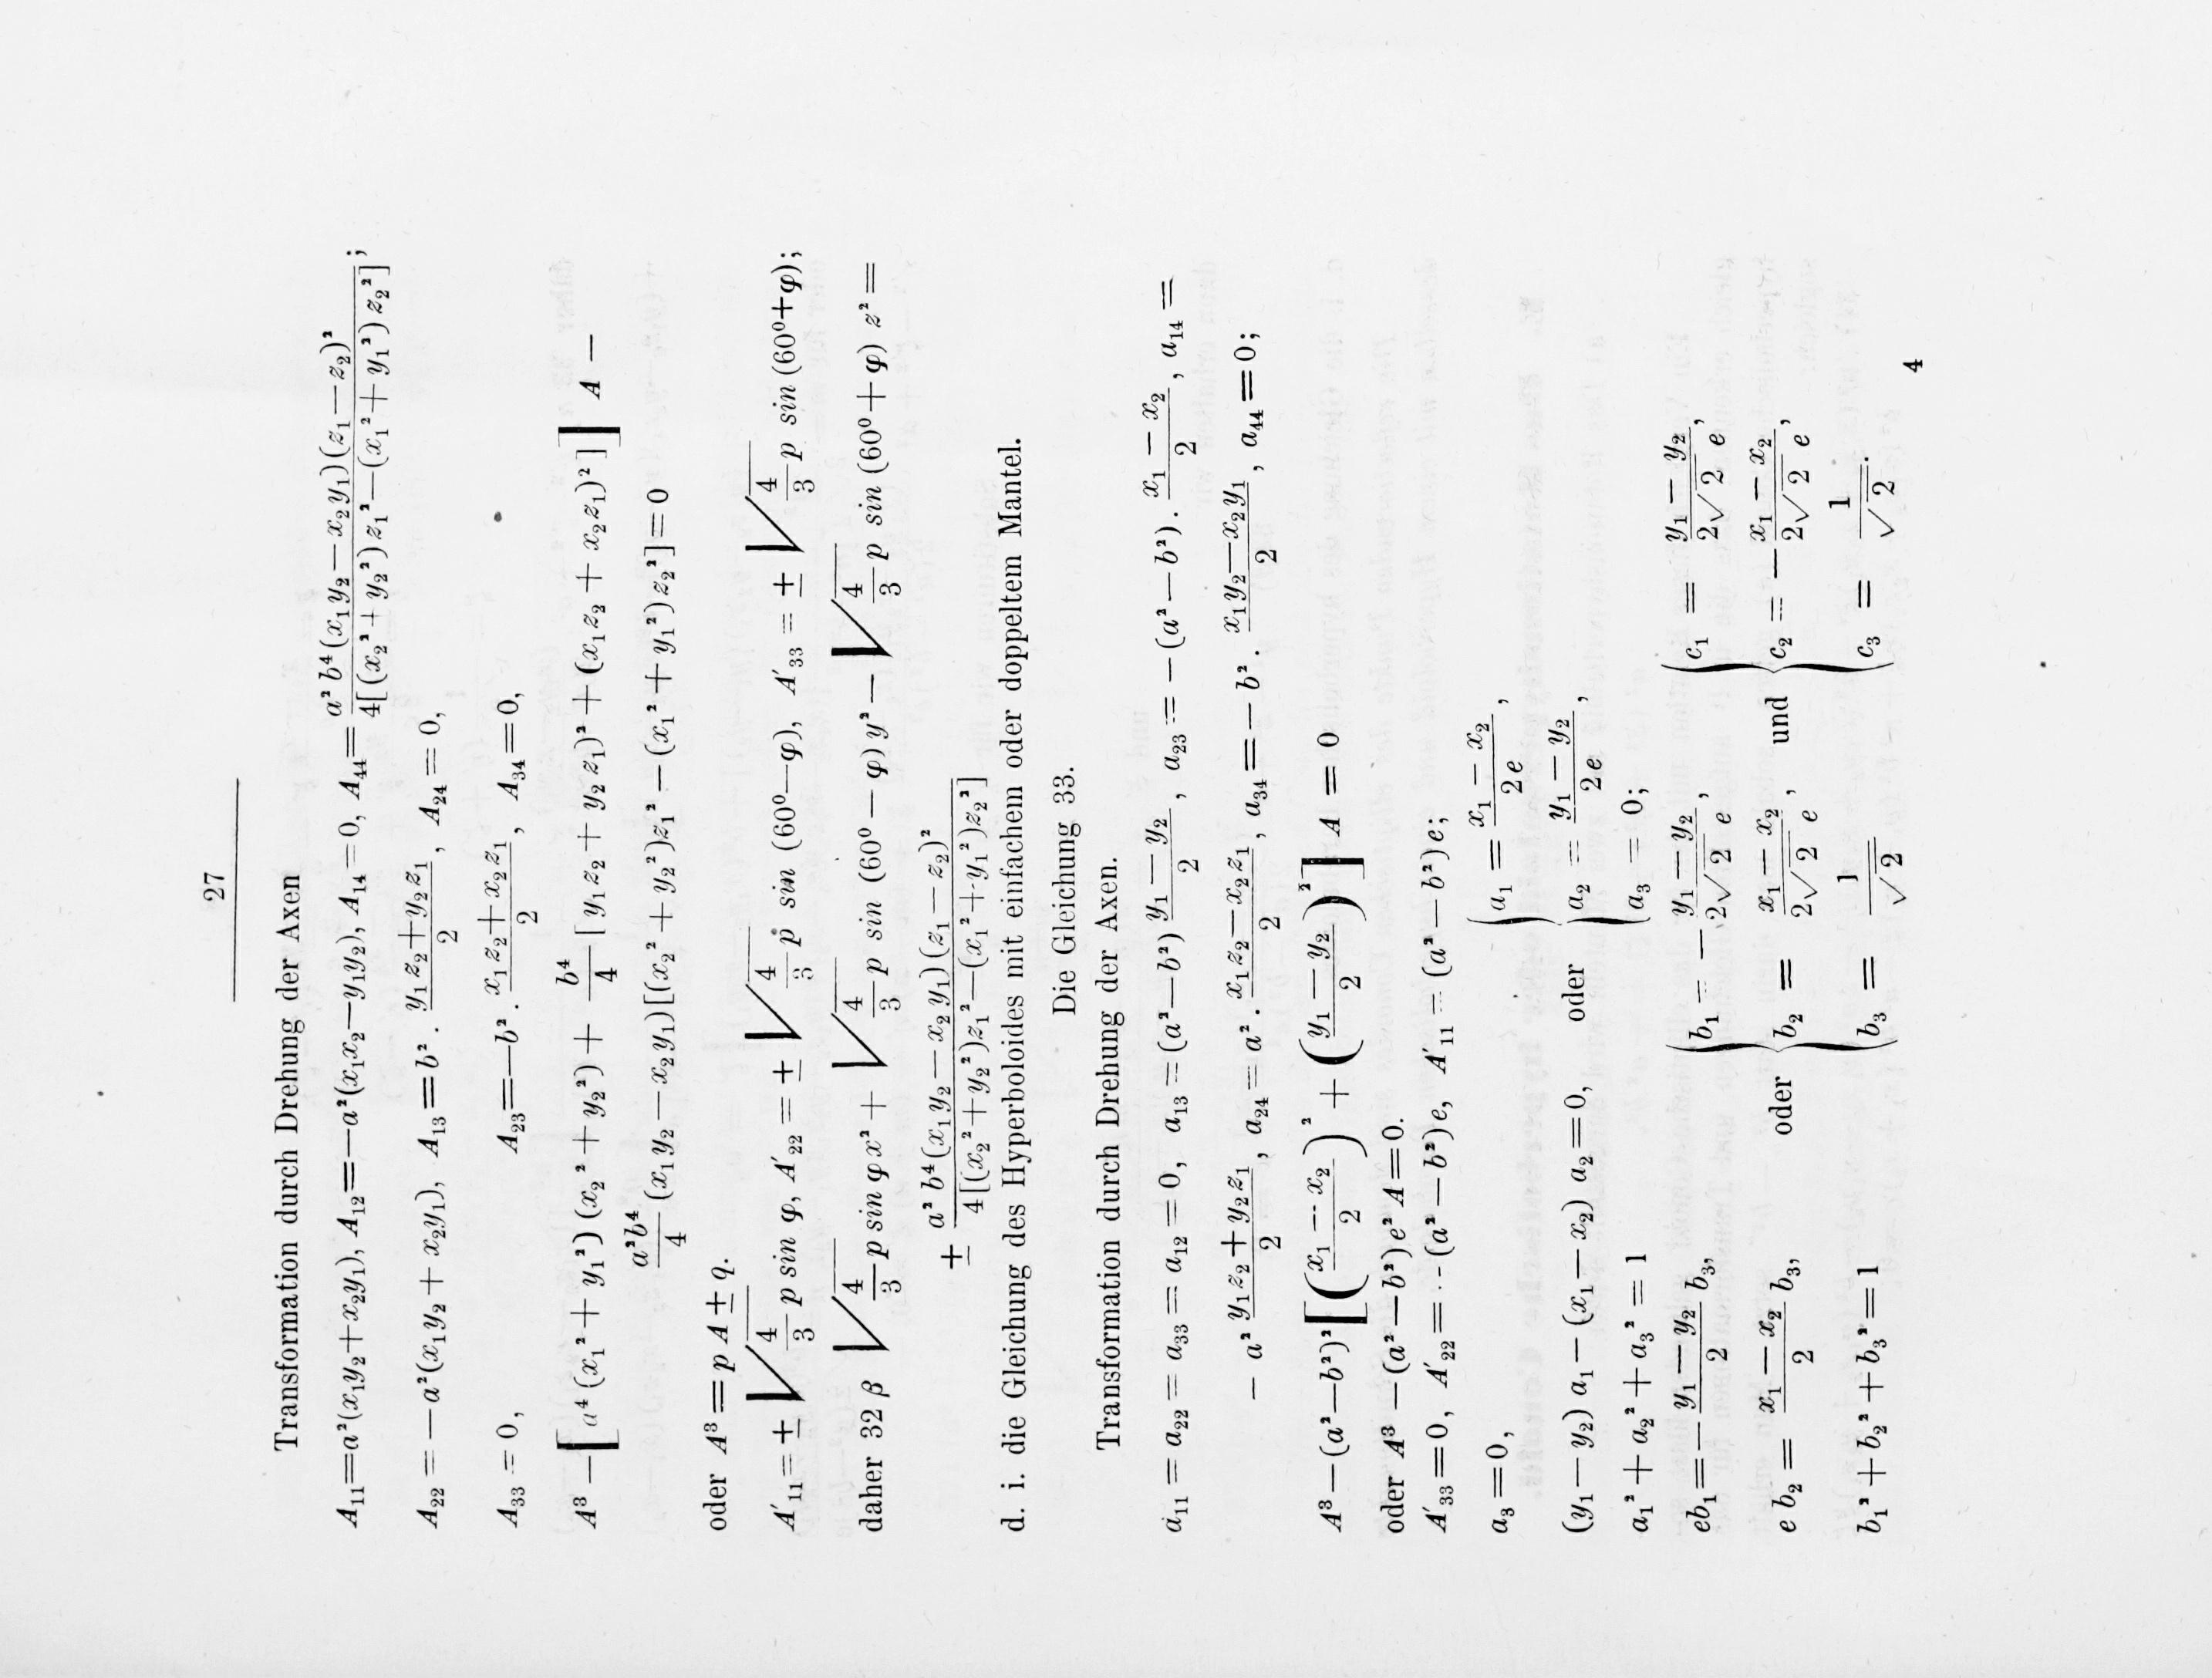 27
Transformation durch Drehung der Axen
A₁₁=a²(x₁y₂+x₂y₁), A₁₂=—a²(x₁x₂—y₁y₂), A₁₄=0, A₄₄= a²b⁴(x₁y₂—x₂y₁)(z₁—z₂)² / 4[(x₂²+y₂²)z₁²—(x₁²+y₁²)z₂²];
A₂₂=—a²(x₁y₂+x₂y₁), A₁₃=b². (y₁z₂+y₂z₁)/2, A₂₄=0,
A₃₃=0, A₂₃=—b². (x₁z₂+x₂z₁)/2, A₃₄=0,
A³—[a⁴(x₁²+y₁²)(x₂²+y₂²)+ b⁴/4 [y₁z₂+y₂z₁)²+(x₁z₂+x₂z₁)²]] A —
a²b⁴/4 (x₁y₂—x₂y₁)[(x₂²+y₂²)z₁²—(x₁²+y₁²)z₂²]=0
oder A³=p A ± q.
A′₁₁=± √(4/3 p) sin φ, A′₂₂=± √(4/3 p) sin (60⁰—φ), A′₃₃=± √(4/3 p) sin (60⁰+φ);
daher 32 β √(4/3 p) sin φ x² + √(4/3 p) sin (60⁰—φ) y² — √(4/3 p) sin (60⁰+φ) z² =
± a²b⁴(x₁y₂—x₂y₁)(z₁—z₂)² / 4[(x₂²+y₂²)z₁²—(x₁²+y₁²)z₂²]
d. i. die Gleichung des Hyperboloides mit einfachem oder doppeltem Mantel.
Die Gleichung 33.
Transformation durch Drehung der Axen.
a₁₁=a₂₂=a₃₃=a₁₂=0, a₁₃=(a²—b²) (y₁—y₂)/2, a₂₃=—(a²—b²). (x₁—x₂)/2, a₁₄=
— a² (y₁z₂+y₂z₁)/2, a₂₄=a². (x₁z₂—x₂z₁)/2, a₃₄=—b². (x₁y₂—x₂y₁)/2, a₄₄=0;
A³—(a²—b²)² [((x₁—x₂)/2)² + ((y₁—y₂)/2)²] A=0
oder A³—(a²—b²)e² A=0.
A′₃₃=0, A′₂₂=—(a²—b²)e, A′₁₁=(a²—b²)e;
a₃=0, { a₁= (x₁—x₂)/2e,
(y₁—y₂) a₁—(x₁—x₂) a₂=0, oder a₂= (y₁—y₂)/2e,
a₁²+a₂²+a₃²=1 a₃=0;
eb₁=— (y₁—y₂)/2 b₃, { b₁=— (y₁—y₂)/2√2 e, { c₁= (y₁—y₂)/2√2 e,
e b₂= (x₁—x₂)/2 b₃, oder b₂= (x₁—x₂)/2√2 e, und c₂=— (x₁—x₂)/2√2 e,
b₁²+b₂²+b₃²=1 b₃= 1/√2 c₃= 1/√2.
4